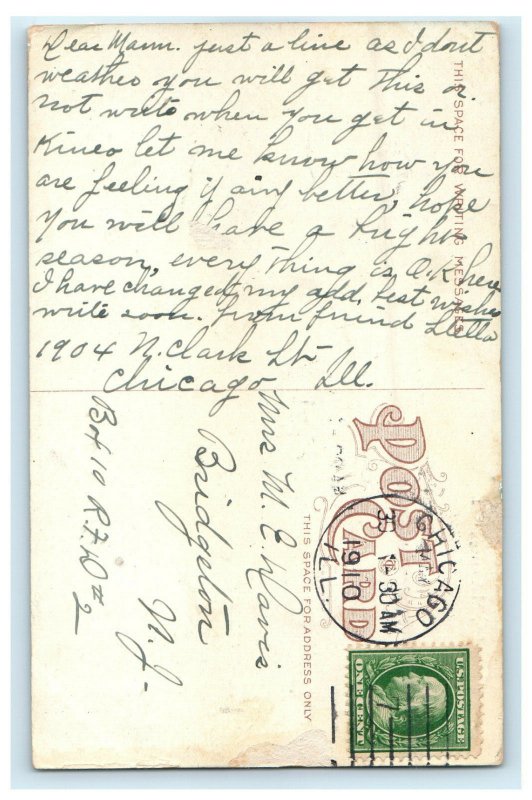 Dear Mam. just a line as I dont
weather you will get this or
not write when you get in
Kineo let me know how you
are feeling if any better, hope
you will have a
season, every thing is O.K. here
I have changed my add. best wishes
write soon. from friend Stella
1904 N. Clark St
Chicago Ill.
THIS SPACE FOR WRITING MESSAGES
POST CARD
THIS SPACE FOR ADDRESS ONLY
Mrs M. E. Davis
Bridgeton
N. J.
Box 10 R.F.D # 2
CHICAGO
1230 AM
1910
ILL.
7
U.S. POSTAGE
ONE CENT